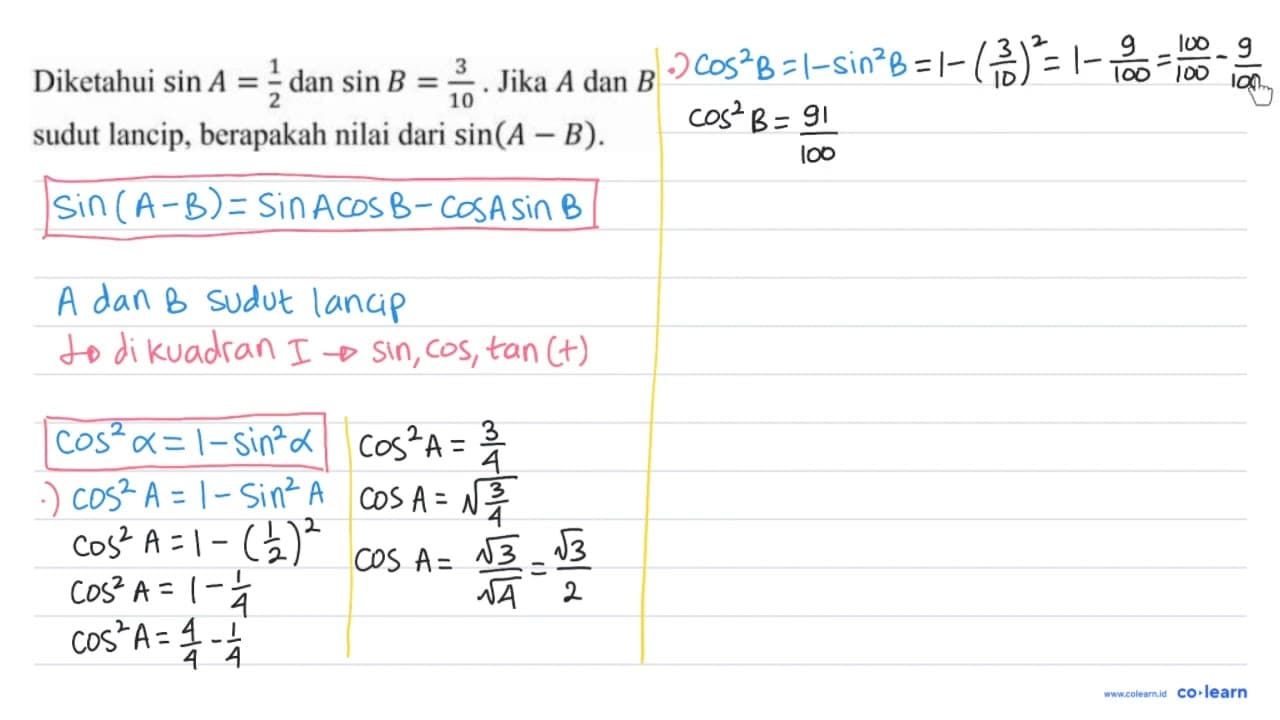 Diketahui sin A = 1/2 dan sin B = 3/10 . Jika A dan B
sudut lancip, berapakah nilai dari sin(A − B).
Sin(A-B) = Sin A cos B - Cos A sin B
A dan B sudut lancip
↳ di kuadran I → sin, cos, tan (+)
Cos² α = 1 - Sin² α
·) cos² A = 1 - Sin² A
Cos² A = 1 - (1/2)²
Cos² A = 1 - 1/4
Cos² A = 4/4 - 1/4
Cos² A = 3/4
Cos A = √(3/4)
Cos A = √3/√4 = √3/2
·) Cos² B = 1 - sin² B = 1 - (3/10)² = 1 - 9/100 = 100/100 - 9/100
Cos² B = 91/100
www.colearn.id co·learn